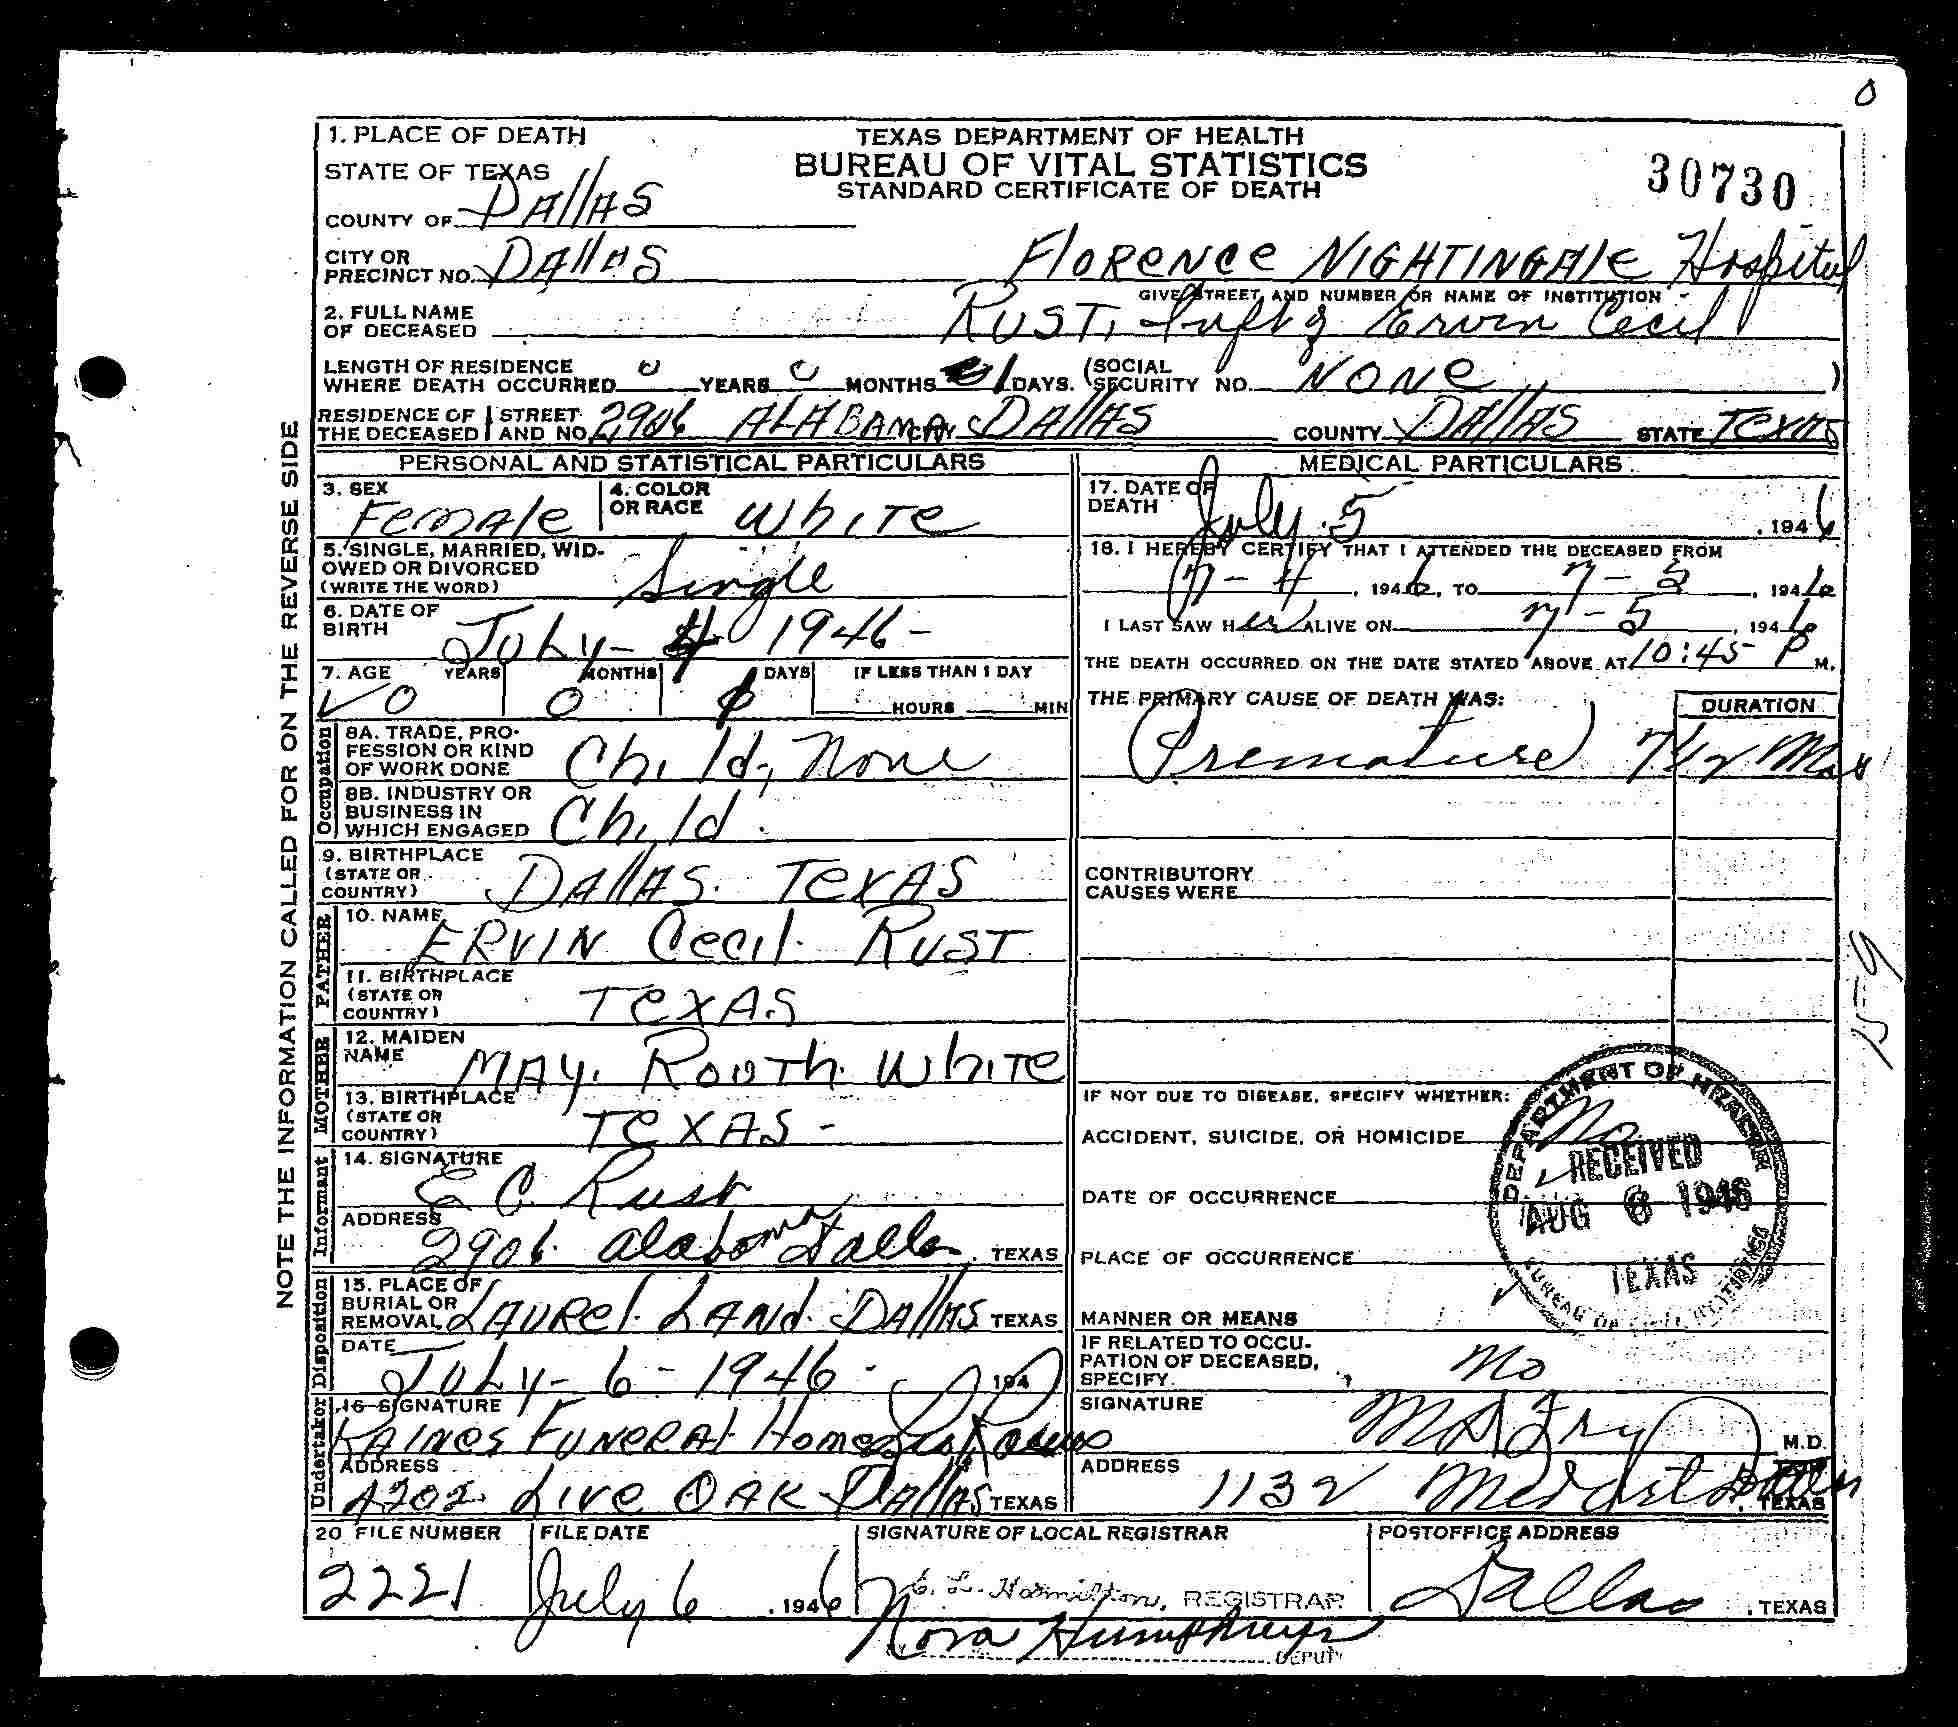 O
1. PLACE OF DEATH
TEXAS DEPARTMENT OF HEALTH
BUREAU OF VITAL STATISTICS
STANDARD CERTIFICATE OF DEATH
30730
STATE OF TEXAS
COUNTY OF DALLAS
CITY OR PRECINCT NO. DALLAS FLORENCE NIGHTINGALE Hospital
GIVE STREET AND NUMBER OR NAME OF INSTITUTION
2. FULL NAME OF DECEASED RUST, Inft of Ervin Cecil
LENGTH OF RESIDENCE WHERE DEATH OCCURRED 0 YEARS 0 MONTHS 1 DAYS. (SOCIAL SECURITY NO. NONE )
RESIDENCE OF THE DECEASED STREET AND NO. 2906 ALABAMA CITY DALLAS COUNTY DALLAS STATE TEXAS
NOTE THE INFORMATION CALLED FOR ON THE REVERSE SIDE
PERSONAL AND STATISTICAL PARTICULARS
3. SEX Female
4. COLOR OR RACE White
5. SINGLE, MARRIED, WIDOWED OR DIVORCED (WRITE THE WORD) Single
6. DATE OF BIRTH July-4 1946-
7. AGE YEARS MONTHS DAYS IF LESS THAN 1 DAY
0 0 1 HOURS MIN
Occupation
8A. TRADE, PROFESSION OR KIND OF WORK DONE Child, None
8B. INDUSTRY OR BUSINESS IN WHICH ENGAGED Child.
9. BIRTHPLACE (STATE OR COUNTRY) DALLAS. TEXAS
FATHER
10. NAME ERVIN Cecil. RUST
11. BIRTHPLACE (STATE OR COUNTRY) TEXAS
MOTHER
12. MAIDEN NAME MAY. ROUTH. WHITE
13. BIRTHPLACE (STATE OR COUNTRY) TEXAS-
Informant
14. SIGNATURE E C Rust
ADDRESS 2906 Alabama Dallas, TEXAS
Disposition
15. PLACE OF BURIAL OR REMOVAL LAUREL LAND. DALLAS TEXAS
DATE JULY-6-1946- 194
Undertaker
16 SIGNATURE KAINES FUNERAL Home
ADDRESS 4202 LIVE OAK-DALLAS TEXAS
MEDICAL PARTICULARS
17. DATE OF DEATH July 5, 1946
18. I HEREBY CERTIFY THAT I ATTENDED THE DECEASED FROM
7-4, 1946, TO 7-5, 1946
I LAST SAW Her ALIVE ON 7-5, 1946
THE DEATH OCCURRED ON THE DATE STATED ABOVE AT 10:45 P M.
THE PRIMARY CAUSE OF DEATH WAS: DURATION
Premature 7 1/2 Mos
CONTRIBUTORY CAUSES WERE
IF NOT DUE TO DISEASE, SPECIFY WHETHER:
ACCIDENT, SUICIDE, OR HOMICIDE No
DATE OF OCCURRENCE
PLACE OF OCCURRENCE
MANNER OR MEANS
IF RELATED TO OCCUPATION OF DECEASED, SPECIFY. No
SIGNATURE M.D.
ADDRESS 1132 Med Art Dallas, TEXAS
DEPARTMENT OF HEALTH
RECEIVED
AUG 6 1946
TEXAS
BUREAU OF VITAL STATISTICS
159
20 FILE NUMBER 2221
FILE DATE July 6, 1946
SIGNATURE OF LOCAL REGISTRAR
C. L. Hamilton, REGISTRAR
Nora Humphreys
DEPUTY
POSTOFFICE ADDRESS Dallas, TEXAS